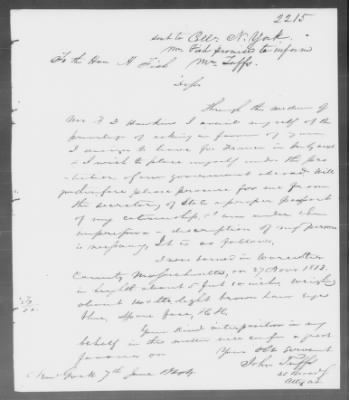 2215
sent to Coll. N. York.
Mr Fish promises to inform
Mr Tuffs.
To the Hon H Fish
Through the medium of
Mr F D I avail myself of the
privilege of asking a favor of you
I design to leave for France in
& I wish to place myself under the pro-
tection of our government abroad. Will
you therefore please procure for me from
the secretary of State a proper passport
of my citizenship, & I am under the
impression a description of my person
is necessary. It is as follows,
I was born in Worcester
County Massachusetts, on 27 Nov 1813
in height about 5 feet 10 inches, weighs
about light brown hair eyes
blue, spare face,
Your kind interposition in my
behalf in the matter will confer a great
favour on Your Obt Servant
John Tuffs
New York 7th June